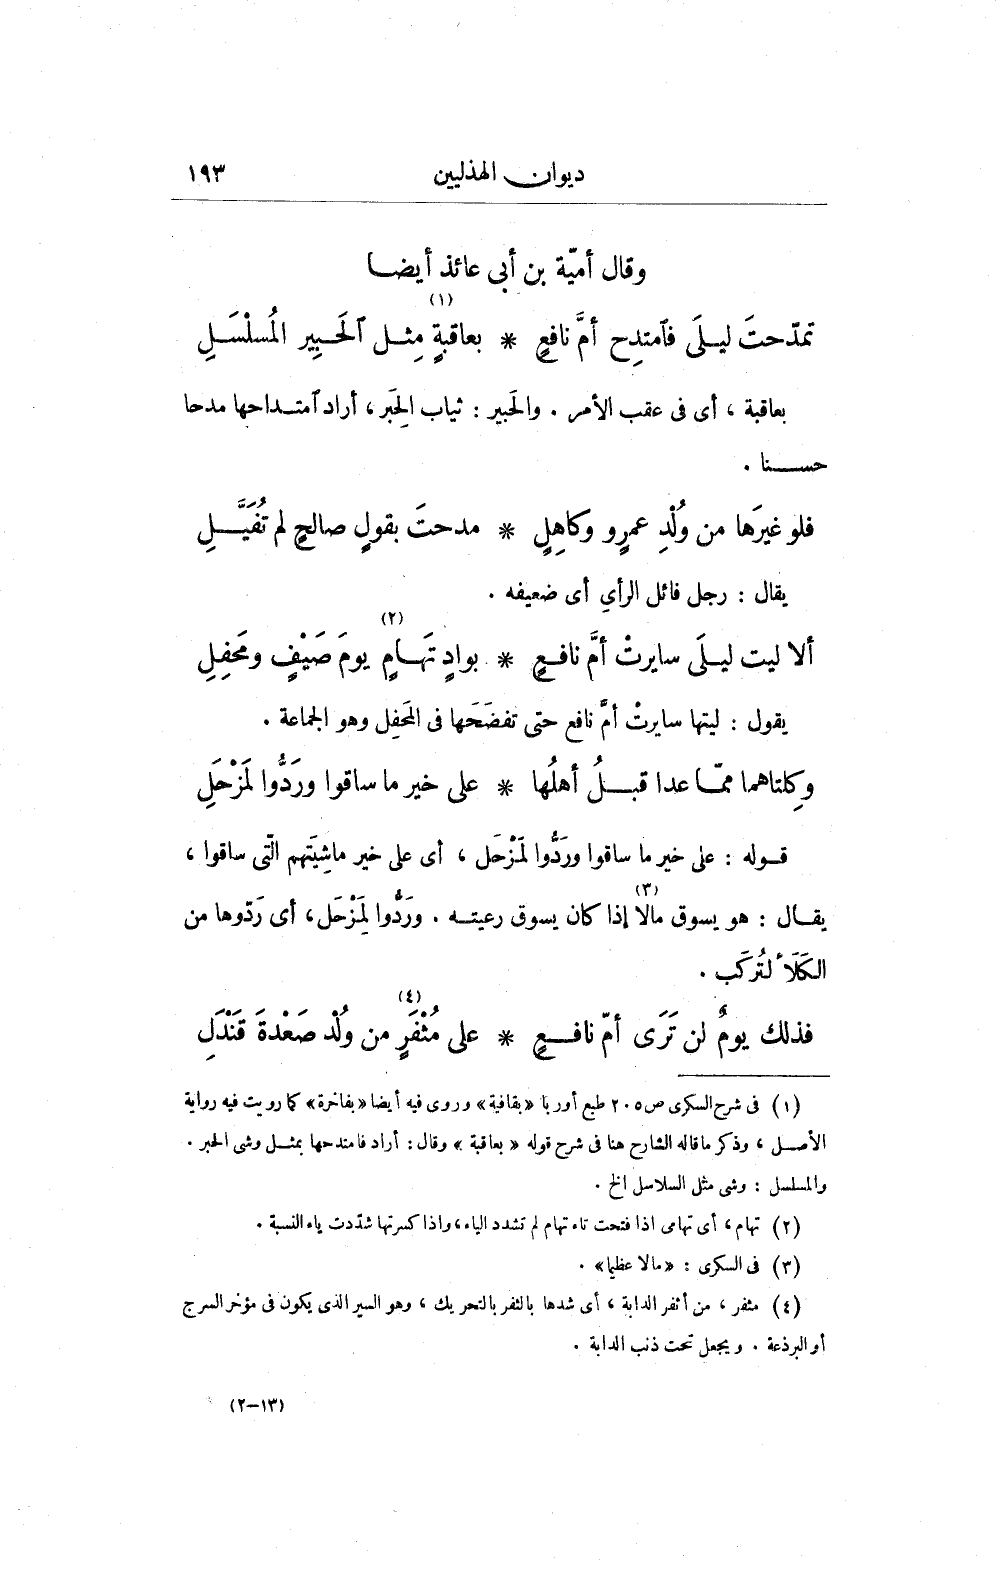 ديوان الهذليين ١٩٣
وقال أميّة بن أبى عائذ أيضا
تمدّحتَ ليلَى فٱمتدِح أمَّ نافعٍ * بعاقبةٍ (١) مِثل ٱلحَبِير المُسلْسَلِ
بعاقبة ، أى فى عقب الأمر . والحَبير : ثياب الحِبَر ، أراد ٱمتداحها مدحا
حسنا .
فلو غيرَها من وُلْدِ عمرٍو وكاهِلٍ * مدحتَ بقولٍ صالحٍ لم تُفَيَّلِ
يقال : رجل فائل الرأىِ أى ضعيفه .
ألا ليت ليلَى سايرتْ أمَّ نافعٍ * بوادٍ تَهامٍ (٢) يومَ صَيْفٍ ومَحفِلِ
يقول : ليتها سايرتْ أمَّ نافع حتى تفضَحَها فى المَحفِل وهو الجماعة .
وكِلتاهما ممّا عدا قبلُ أهلُها * على خير ما ساقوا ورَدُّوا لمَزْحَلِ
قوله : على خير ما ساقوا وردُّوا لمَزْحَل ، أى على خير ماشِيَتهم الّتى ساقوا ،
يقال : هو يسوق مالا (٣) إذا كان يسوق رعيته . ورَدُّوا لمَزْحَل، أى رَدّوها من
الكَلَأ لتُركَب .
فذلك يومٌ لن تَرَى أمّ نافعٍ * على مُثْفَرٍ (٤) من وُلْد صَعْدةَ قَنْدَلِ
(١) فى شرح السكرى ص٢٠٥ طبع أوربا «بقافية» وروى فيه أيضا «بفاخرة» كما رويت فيه رواية
الأصل ، وذكر ما قاله الشارح هنا فى شرح قوله « بعاقبة » وقال : أراد فامتدحها بمثل وشى الحبر .
والمسلسل : وشى مثل السلاسل الخ .
(٢) تهام ، أى تهامى اذا فتحت تاء تهام لم تشدد الياء ، واذا كسرتها شدّدت ياء النسبة .
(٣) فى السكرى : «مالا عظيما» .
(٤) مثفر ، من أثفر الدابة ، أى شدها بالثفر بالتحريك ، وهو السير الذى يكون فى مؤخر السرج
أو البرذعة . ويجعل تحت ذنب الدابة .
(٢-١٣)